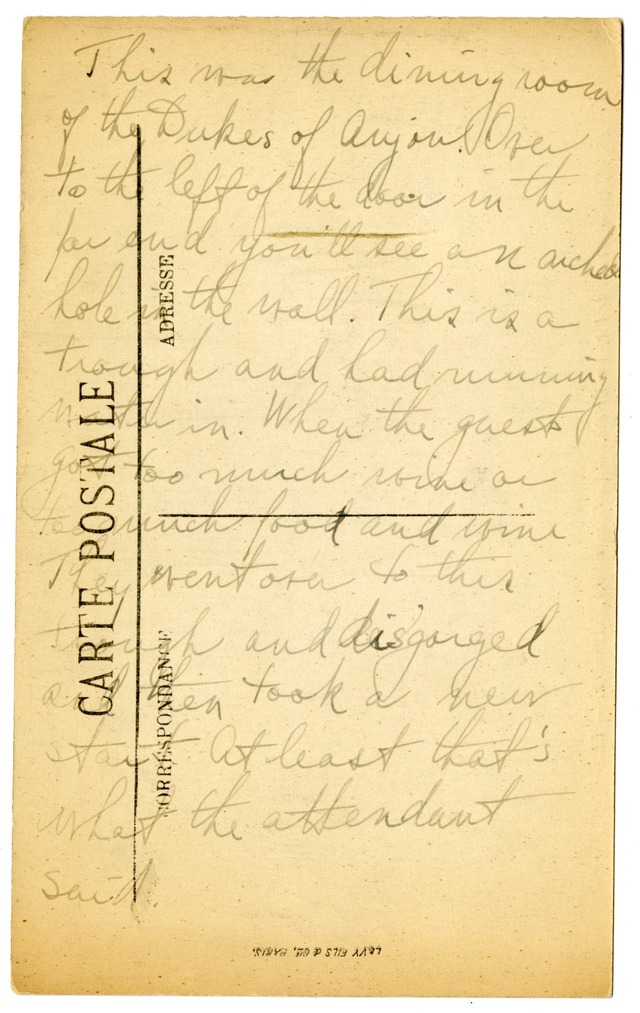 This was the dining room
of the Dukes of Anjou. Over
to the left of the door in the
far end you'll see an arched
hole in the wall. This is a
trough and had running
water in. When the guests
got too much wine or
too much food and wine
They went over to this
trough and disgorged
and then took a new
start. At least that's
what the attendant
said.
CARTE POSTALE
ADRESSE
CORRESPONDANCE
LÉVY FILS & Cie, PARIS.